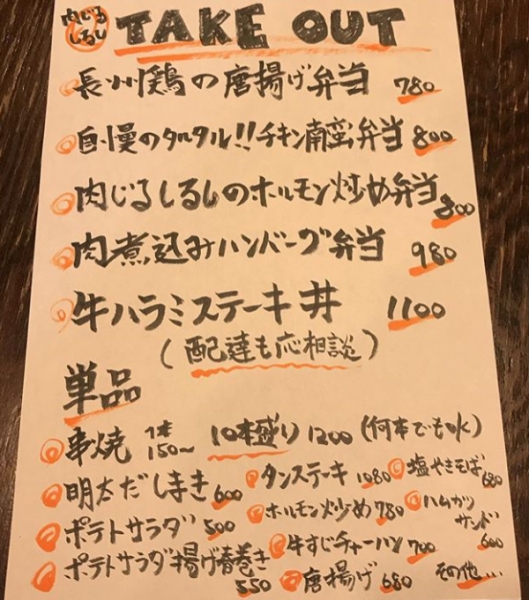 肉じる
しるし
TAKE OUT
長州鶏の唐揚げ弁当 780
自慢のタルタル!!チキン南蛮弁当 800
肉じるしるしのホルモン炒め弁当 800
肉煮込みハンバーグ弁当 980
牛ハラミステーキ丼 1100
(配達も応相談)
単品
串焼 1本 150〜 10本盛り 1200 (何本でも
明太だしまき 600
ポテトサラダ 500
ポテトサラダ揚げ春巻き 550
タンステーキ 1080
ホルモン炒め 780
牛すじチャーハン 700
唐揚げ 680
塩やきそば 680
ハムカツ
サンド 600
その他...